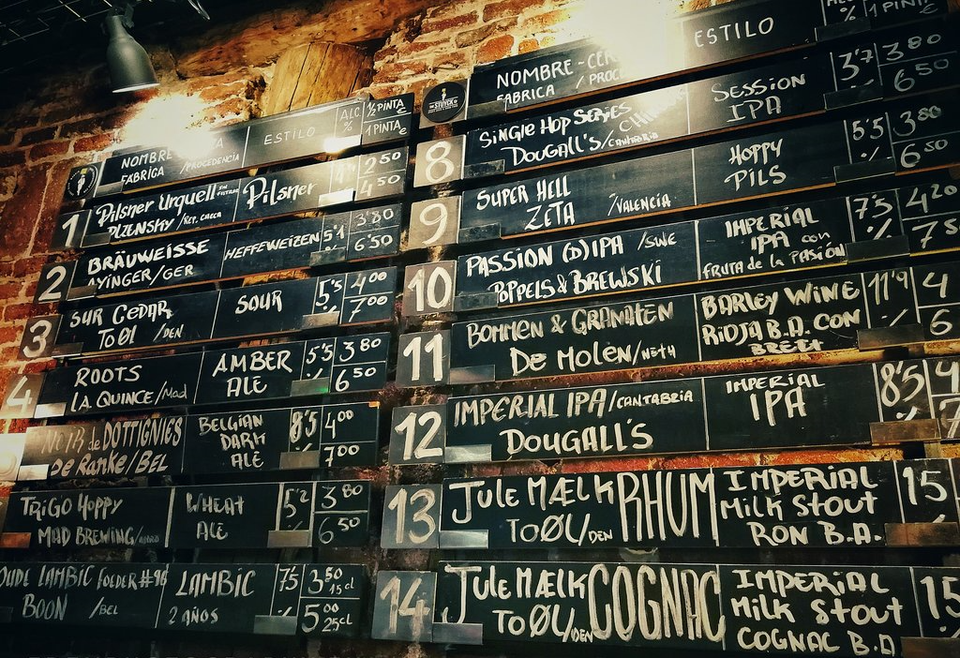 FABRICA /PROCEDENCIA
ESTILO
ALC %
½ PINTA
1 PINTA €
1
Pilsner Urquell
PLZENSKY
Pilsner
250
4'50
2
BRÄUWEISSE
AYINGER/GER
HEFFEWEIZEN
5'1
3'80
6'50
3
SUR CEDAR
TO ØL /DEN
SOUR
5'5 %
4'00
7'00
4
ROOTS
LA QUINCE/Mad
AMBER
ALE
5'5 %
3'80
6'50
de DOTTIGNIES
De Ranke/BEL
BELGIAN
DARK
ALE
8'5 %
4'00
7'00
TRIGO HOPPY
MAD BREWING
WHEAT
ALE
5'2 %
3'80
6'50
OUDE LAMBIC FOEDER #96
BOON /BEL
LAMBIC
2 AÑOS
7'5 %
3'50 15cl
5'00 25cl
FABRICA
ESTILO
%
1 PINTA
8
SINGLE HOP SERIES
DOUGALL'S/CANTABRIA
SESSION
IPA
3'7 %
3'80
6'50
9
SUPER HELL
ZETA /VALENCIA
HOPPY
PILS
5'5 %
3'80
6'50
10
PASSION (D)IPA /SWE
POPPELS & BREWSKI
IMPERIAL
IPA con
fruta de la PASIÓN
7'5 %
4'20
11
BOMMEN & GRANATEN
DE MOLEN/NETH
BARLEY WINE
RIOJA B.A. CON
BRETT
11'9 %
4
6
12
IMPERIAL IPA/CANTABRIA
DOUGALL'S
IMPERIAL
IPA
8'5 %
4
7
13
JULE MÆLK RHUM
TO ØL/DEN
IMPERIAL
MILK STOUT
RON B.A.
15
14
JULE MÆLK COGNAC
TO ØL/DEN
IMPERIAL
MILK STOUT
COGNAC B.A
15